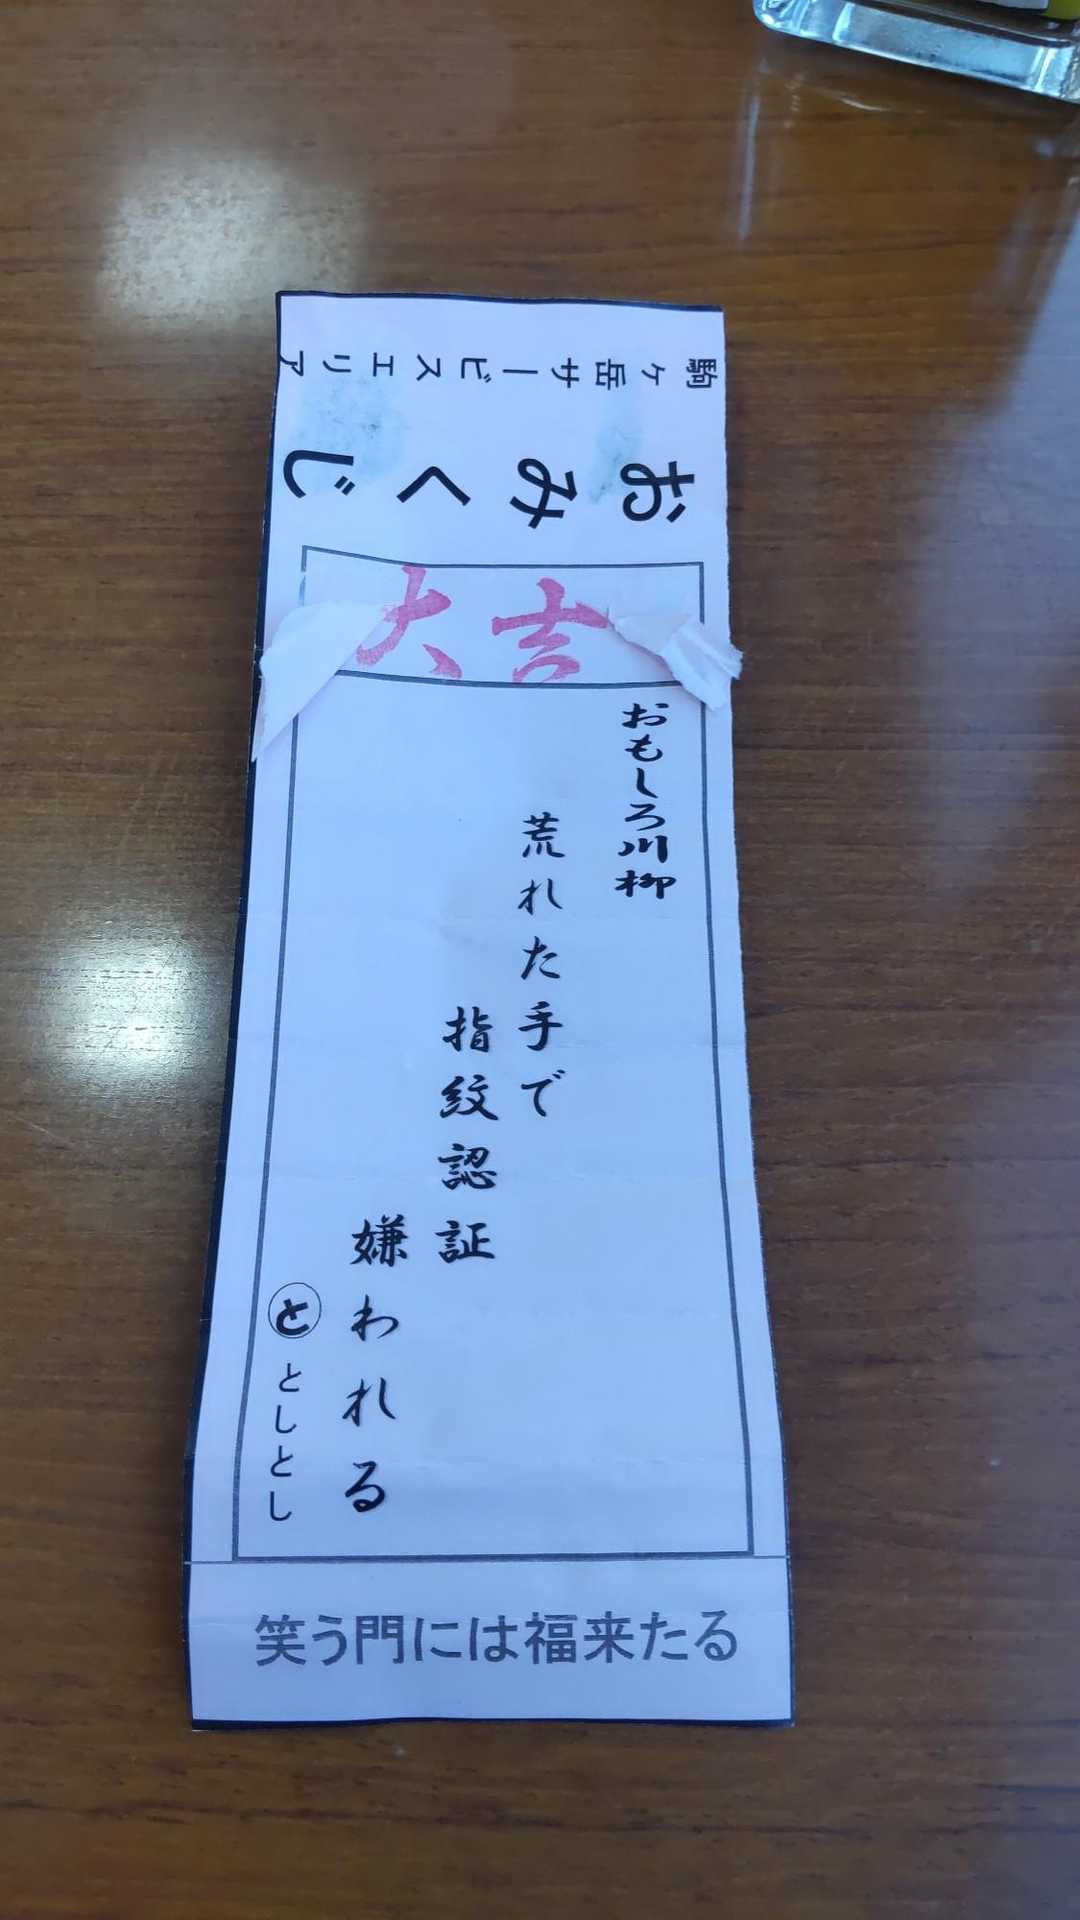 駒ヶ岳サービスエリア
おみくじ
大吉
おもしろ川柳
荒れた手で
指紋認証
嫌われる
と としとし
笑う門には福来たる